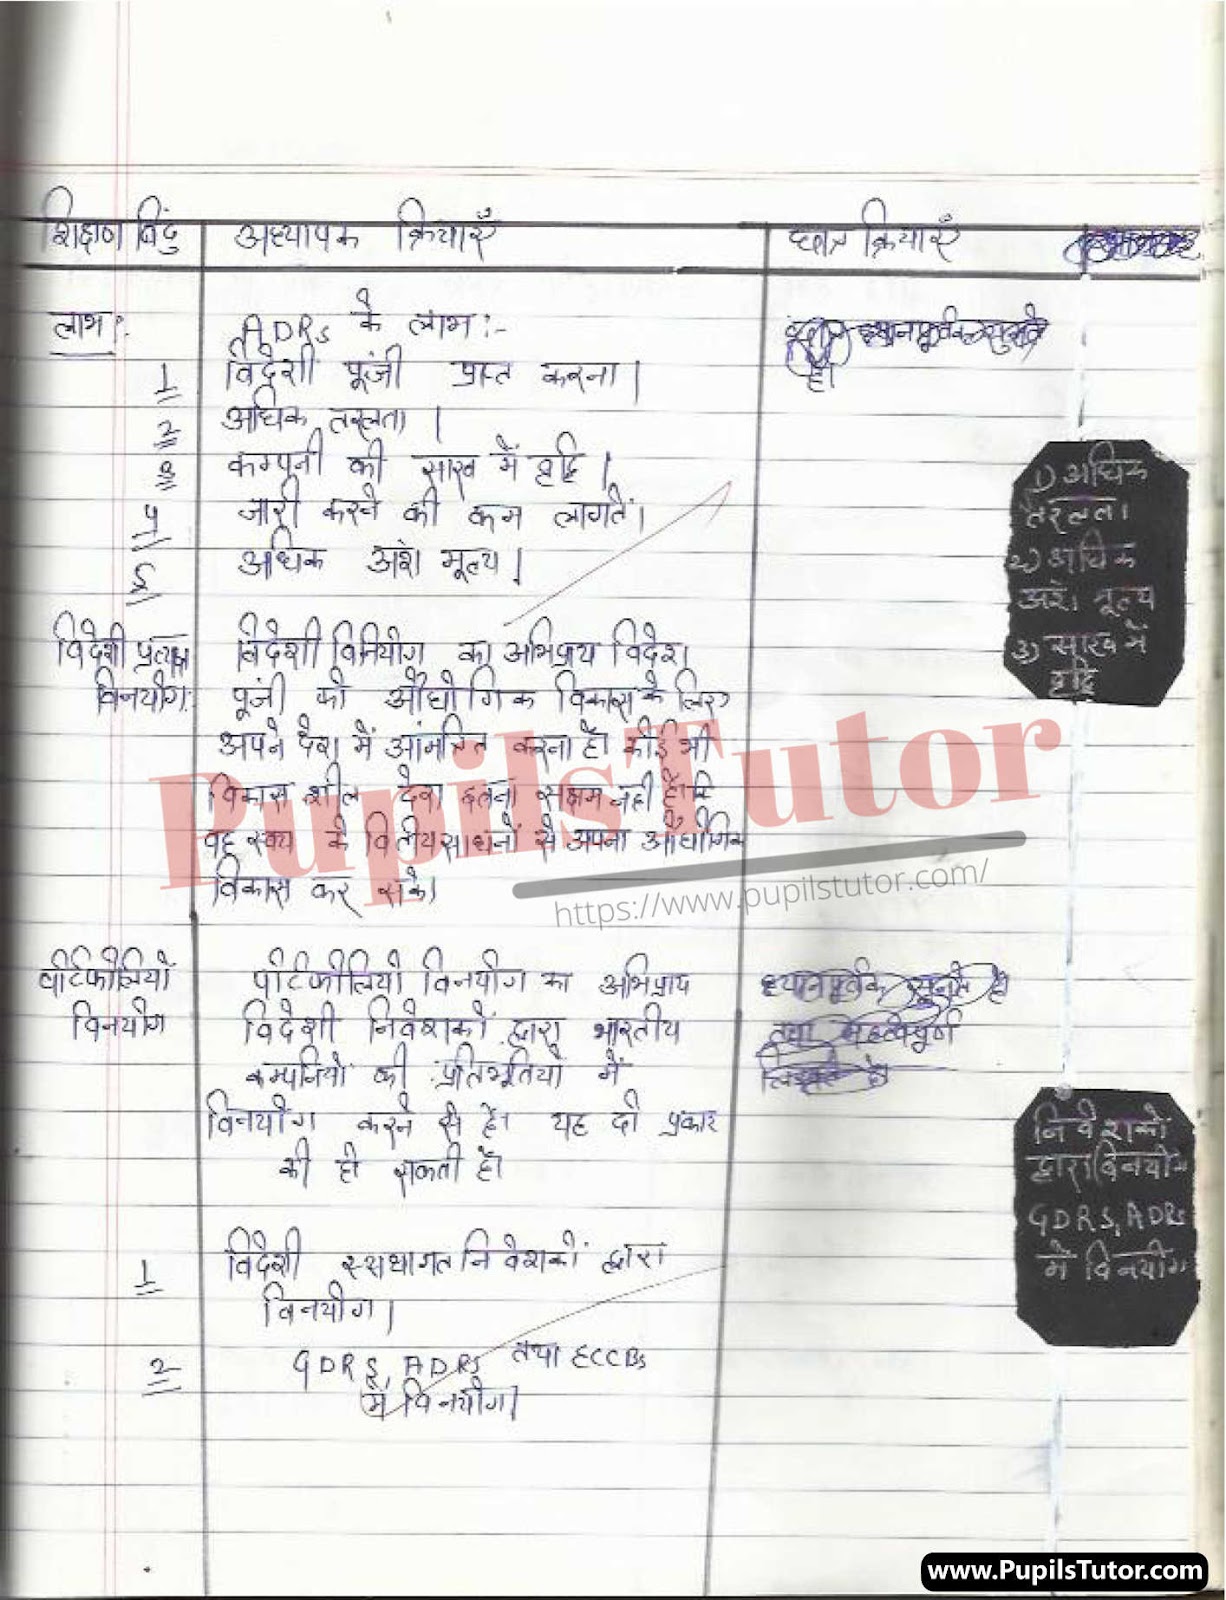 शिक्षण बिंदु
अध्यापक क्रियाएँ
छात्र क्रियाएँ
लाभ :
ADRs के लाभ :-
1 विदेशी पूंजी प्राप्त करना।
2 अधिक तरलता।
3 कम्पनी की साख में वृद्धि।
4 जारी करने की कम लागतें।
5 अधिक अंश मूल्य।
ध्यानपूर्वक
है।
1) अधिक
तरलता।
2) अधिक
अंश मूल्य
3) साख में
वृद्धि
विदेशी प्रत्यक्ष
विनयोग
विदेशी विनियोग का अभिप्राय विदेश
पूंजी को औद्योगिक विकास के लिए
अपने देश में आंमत्रित करना है। कोई भी
विकास शील देश इतना सक्षम नही है कि
वह स्वय के वित्तीय साधनों से अपना औद्योगिक
विकास कर सके।
पोर्टफोलियो
विनयोग
पोर्टफोलियो विनयोग का अभिप्राय
विदेशी निवेशकों द्वारा भारतीय
कम्पनियों की प्रतिभूतियो में
विनयोग करने से है। यह दो प्रकार
की हो सकती है।
1 विदेशी स्सथागत निवेशकों द्वारा
विनयोग।
2 GDRs, ADRs तथा FCCBs
में विनयोग।
ध्यानपूर्वक सुनते है
तथा महत्वपूर्ण
लिखते है।
निवेशको
द्वारा विनयोग
GDRS, ADRs
मे विनयोग
PupilsTutor
https://www.pupilstutor.com/
www.PupilsTutor.com